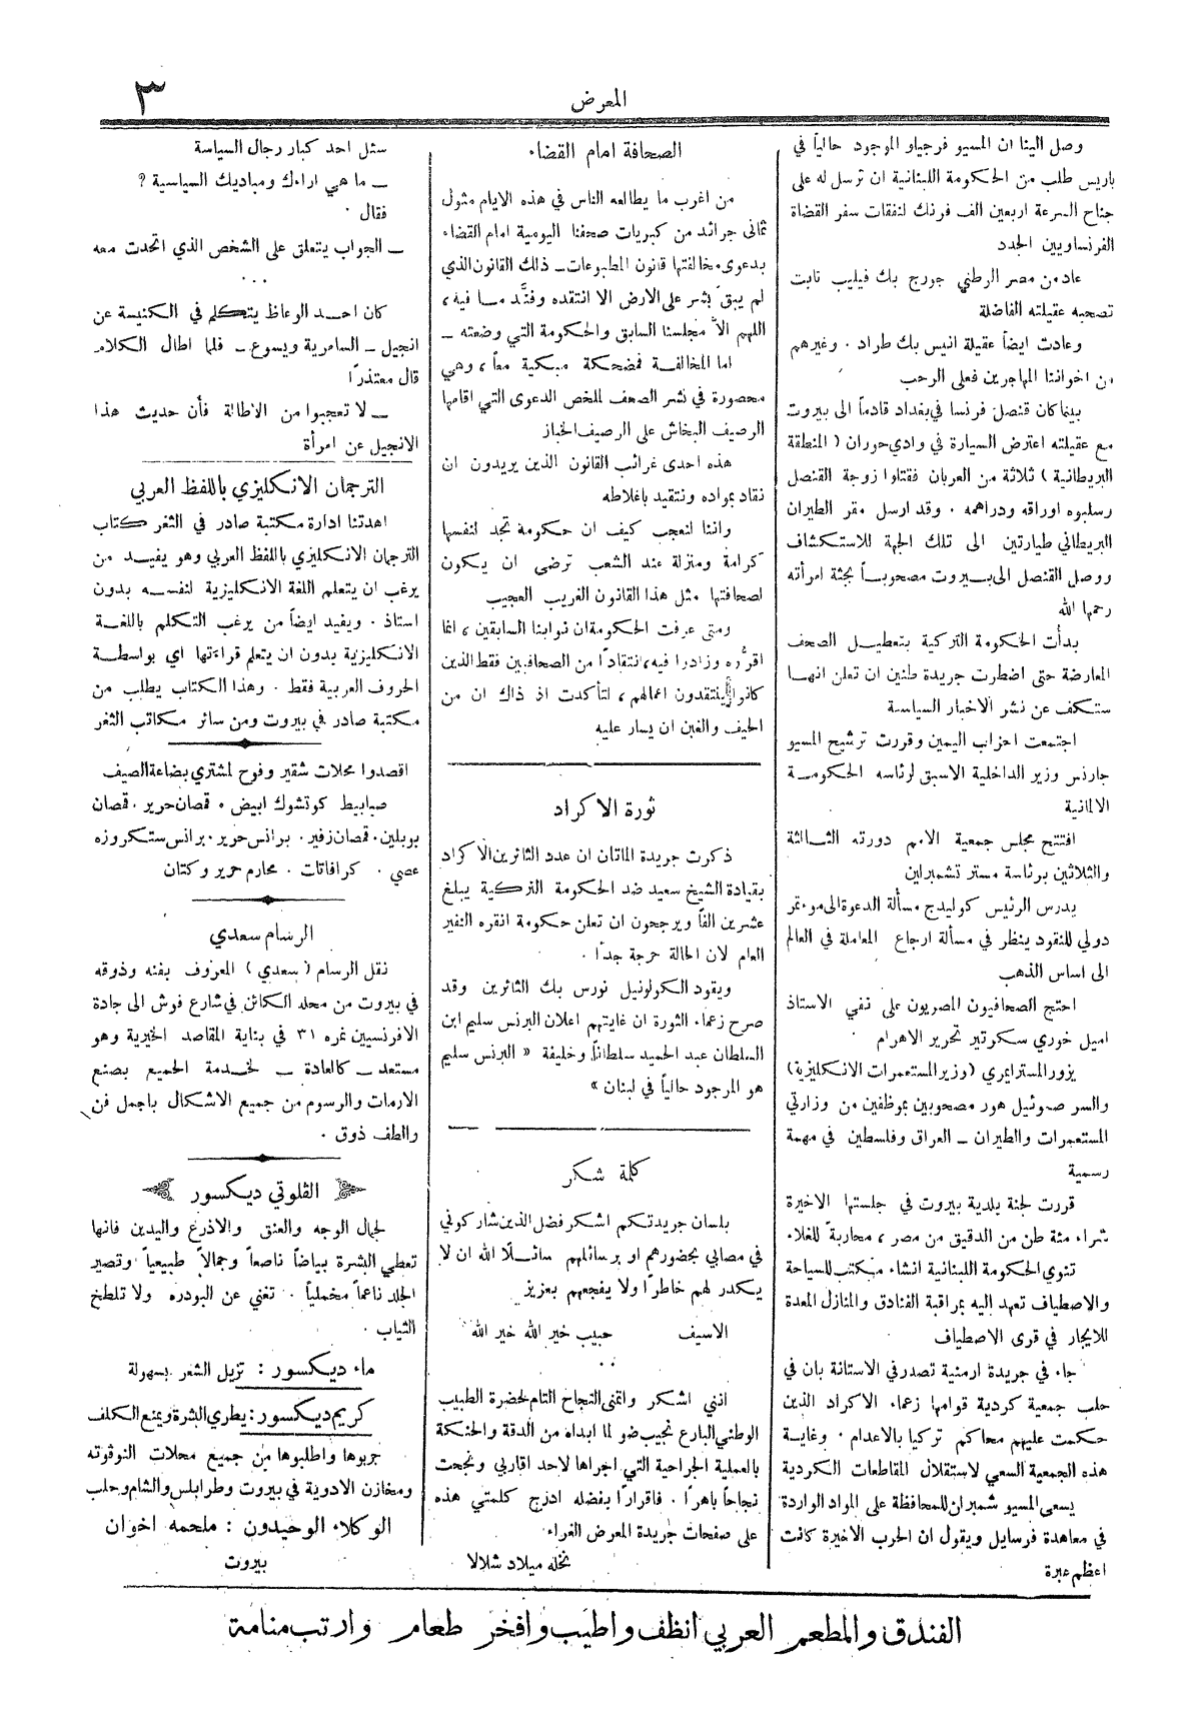 المعرض
٣
وصل الينا ان المسيو فرجياو الموجود حالياً في
باريس طلب من الحكومة اللبنانية ان ترسل له على
جناح السرعة اربعين الف فرنك لنفقات سفر القضاة
الفرنساويين الجدد
عاد من مصر الوطني جورج بك فيليب ثابت
تصحبه عقيلته الفاضلة
وعادت ايضاً عقيلة انيس بك طراد . وغيرهم
من اخواننا المهاجرين فعلى الرحب
بينما كان قنصل فرنسا في بغداد قادماً الى بيروت
مع عقيلته اعترض السيارة في وادي حوران ( المنطقة
البريطانية ) ثلاثة من العربان فقتلوا زوجة القنصل
وسلبوه اوراقه ودراهمه . وقد ارسل مقر الطيران
البريطاني طيارتين الى تلك الجهة للاستكشاف
ووصل القنصل الى بيروت مصحوباً بجثة امرأته
رحمها الله
بدأت الحكومة التركية بتعطيل الصحف
المعارضة حتى اضطرت جريدة طنين ان تعلن انها
ستكف عن نشر الاخبار السياسة
اجتمعت احزاب اليمين وقررت ترشيح المسيو
جارنس وزير الداخلية الاسبق لرئاسه الحكومة
الالمانية
افتتح مجلس جمعية الامم دورته الثالثة
والثلاثين برئاسة مستر تشمبرلين
يدرس الرئيس كوليدج مسألة الدعوة الى موءتمر
دولي للنقود ينظر في مسألة ارجاع المعاملة في العالم
الى اساس الذهب
احتج الصحافيون المصريون على نفي الاستاذ
اميل خوري سكرتير تحرير الاهرام
يزور المسترايمري ( وزير المستعمرات الانكليزية )
والسر صموئيل هور مصحوبين بموظفين من وزارتي
المستعمرات والطيران ــ العراق وفلسطين في مهمة
رسمية
قررت لجنة بلدية بيروت في جلستها الاخيرة
شراء مئة طن من الدقيق من مصر ، محاربةً للغلاء
تنوي الحكومة اللبنانية انشاء مكتب للسياحة
والاصطياف تعهد اليه بمراقبة الفنادق والمنازل المعدة
للايجار في قرى الاصطياف
جاء في جريدة ارمنية تصدر في الاستانة بان في
حلب جمعية كردية قوامها زعماء الاكراد الذين
حكمت عليهم محاكم تركيا بالاعدام . وغاية
هذه الجمعية السعي لاستقلال المقاطعات الكردية
يسعى المسيو شمبران للمحافظة على المواد الواردة
في معاهدة فرسايل ويقول ان الحرب الاخيرة كانت
اعظم عبرة
الصحافة امام القضاء
من اغرب ما يطالعه الناس في هذه الايام مثول
ثماني جرائد من كبريات صحفنا اليومية امام القضاء
بدعوى مخالفتها قانون المطبوعات ــ ذلك القانون الذي
لم يبقَ بشر على الارض الا انتقده وفنَّد مـا فيه ،
اللهم الاَّ مجلسنا السابق والحكومة التي وضعته ــ
اما المخالفـة فمضحكة مبكية معاً ، وهي
محصورة في نشر الصحف لملخص الدعوى التي اقامها
الرصيف البخاش على الرصيف الخباز
هذه احدى غرائب القانون الذين يريدون ان
نقاد بمواده ونتقيد باغلاطه
واننا لنعجب كيف ان حكومة تجد لنفسها
كرامة ومنزلة عند الشعب ترضى ان يكون
لصحافتها مثل هذا القانون الغريب العجيب
ومتى عرفت الحكومة ان نوابنا السابقين ، انما
اقرُّوه وزادوا فيه، انتقاداً من الصحافيين فقط الذين
كانوا ينتقدون اعمالهم ، لتأكدت اذ ذاك ان من
الحيف والغبن ان يسار عليه
ثورة الاكراد
ذكرت جريدة الماتان ان عدد الثائرين الاكراد
بقيادة الشيخ سعيد ضد الحكومة التركية يبلغ
عشرين الفاً ويرجحون ان تعلن حكومة انقره النفير
العام لان الحالة حرجة جداً .
ويقود الكولونيل نورس بك الثائرين وقد
صرح زعماء الثورة ان غايتهم اعلان البرنس سليم ابن
السلطان عبد الحميد سلطاناً وخليفة « البرنس سليم
هو الموجود حالياً في لبنان »
كلمة شكر
بلسان جريدتكم اشكر فضل الذين شاركوني
في مصابي بحضورهم او برسائلهم سائلاً الله ان لا
يكدر لهم خاطراً ولا يفجعهم بعزيز
الاسيف حبيب خير الله خير الله
انني اشكر واتمنى النجاح التام لحضرة الطبيب
الوطني البارع نجيب ضو لما ابداه من الدقة والحنكة
بالعملية الجراحية التي اجراها لاحد اقاربي ونجحت
نجاحاً باهراً . فاقراراً بفضله ادرج كلمتي هذه
على صفحات جريدة المعرض الغراء
نخله ميلاد شلالا
سئل احد كبار رجال السياسة
ــ ما هي اراءك ومباديك السياسية ؟
فقال .
ــ الجواب يتعلق على الشخص الذي اتحدث معه
...
كان احد الوعاظ يتكلم في الكنيسة عن
انجيل ــ السامرية ويسوع ــ فلما اطال الكلام
قال معتذراً
ــ لا تعجبوا من الاطالة فأن حديث هذا
الانجيل عن امرأة
الترجمان الانكليزي باللفظ العربي
اهدتنا ادارة مكتبة صادر في الثغر كتاب
الترجمان الانكليزي باللفظ العربي وهو يفيد من
يرغب ان يتعلم اللغة الانكليزية لنفسه بدون
استاذ . ويفيد ايضاً من يرغب التكلم باللغة
الانكليزية بدون ان يتعلم قراءتها اي بواسطة
الحروف العربية فقط . وهذا الكتاب يطلب من
مكتبة صادر في بيروت ومن سائر مكاتب الثغر
اقصدوا محلات شقير وفوح لمشتري بضاعة الصيف
صبابيط كوتشوك ابيض . قمصان حرير . قمصان
بوبلين . قمصان زفير . برانس حرير . برانس ستكروزه
عصي . كرافاتات . محارم حرير وكتان
الرسام سعدي
نقل الرسام ( سعدي ) المعروف بفنه وذوقه
في بيروت من محله الكائن في شارع فوش الى جادة
الافرنسيين نمره ٣١ في بناية المقاصد الخيرية وهو
مستعد ــ كالعادة ــ لخدمة الجميع بصنع
الارمات والرسوم من جميع الاشكال باجمل فن
والطف ذوق .
القلوتي ديكسور
لجمال الوجه والعنق والاذرع واليدين فانها
تعطي البشرة بياضاً ناصعاً وجمالاً طبيعياً وتصير
الجلد ناعماً مخملياً . تغني عن البودره ولا تلطخ
الثياب .
ماء ديكسور : تزيل الشعر بسهولة
كريم ديكسور : يطري البشرة ويمنع الكلف
جربوها واطلبوها من جميع محلات النوفوته
ومخازن الادوية في بيروت وطرابلس والشام وحلب
الوكلاء الوحيدون : ملحمه اخوان
بيروت
الفندق والمطعم العربي انظف واطيب وافخر طعام وارتب منامة